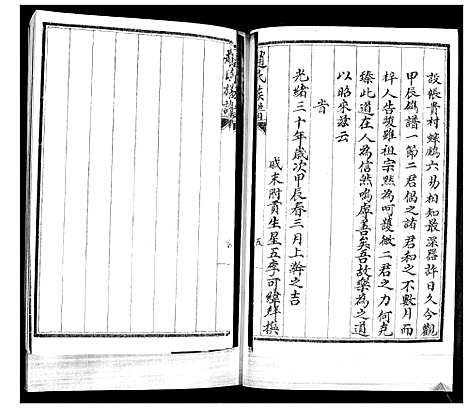 設帳貴村蟀鷉六易相知最深器許日久今觀
甲辰鐫譜一節二君偈之諸君和之不數月而
梓人告竣雖祖宗默為呵護微二君之力何克
臻此道在人為信然嗚虖善矣吾故樂為之道
以昭來茲云
旹
光緒三十年歲次甲辰春三月上澣之吉
戚末附貢生星五李可 撰
氏族譜
五